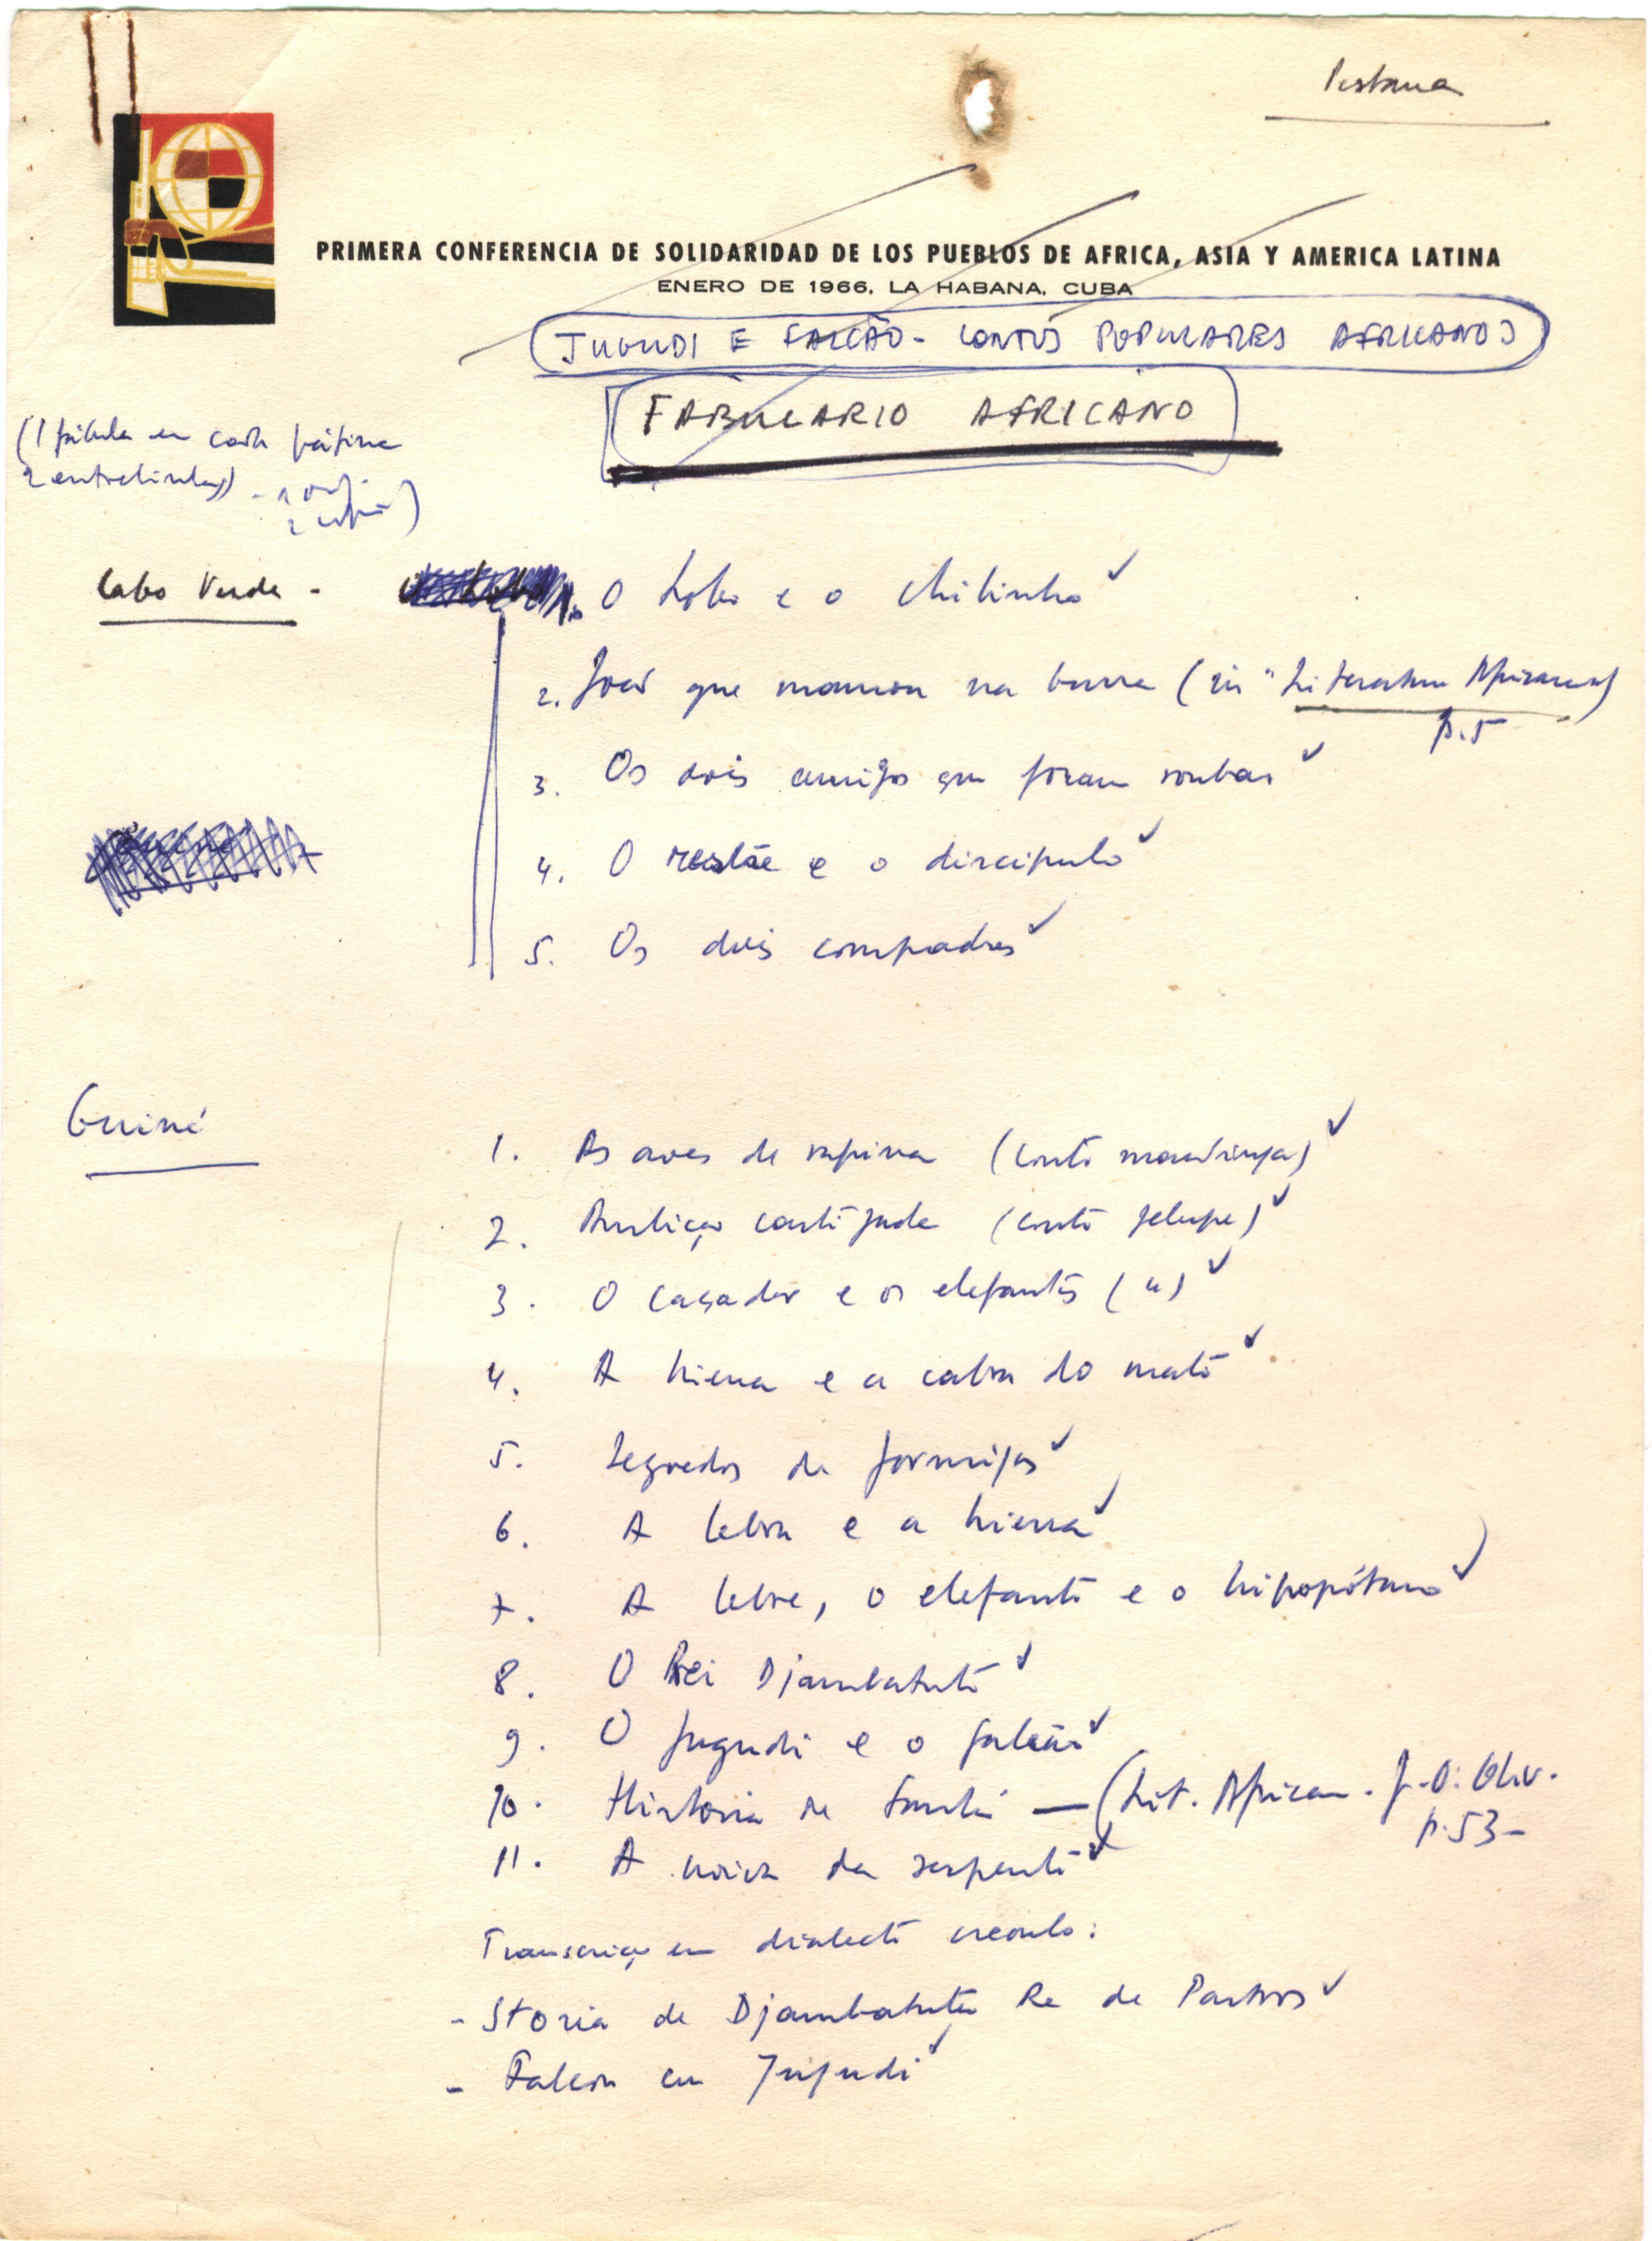 Pestana
PRIMERA CONFERENCIA DE SOLIDARIDAD DE LOS PUEBLOS DE AFRICA, ASIA Y AMERICA LATINA
ENERO DE 1966, LA HABANA, CUBA
JUGUDI E FALCÃO - CONTOS POPULARES AFRICANOS
FABULARIO AFRICANO
(1 fábula em cada página
2 entrelinhas)
Cabo Verde -
1. O Lobo e o Chibinho
2. João que mamou na burra (in "Literatura Africana)
p. 5
3. Os dois amigos que foram roubar
4. O e o discípulo
5. Os dois compadres
Guiné
1. As aves de rapina (conto mandinga)
2. Ambição castigada (conto felupe)
3. O caçador e os elefantes (")
4. A hiena e a cabra do mato
5. Segredos da formigas
6. A lebre e a hiena
7. A lebre, o elefante e o hipopótamo
8. O Rei Djambatutu
9. O jugudi e o falcão
10. Historia de — (Lit. African. J. O. Oliv.
p. 53 -
11. A noiva da serpente
Transcrição em dialecto creoulo:
- Storia de Djambatutu Re de Pastros
- Falcon cu Jugudi